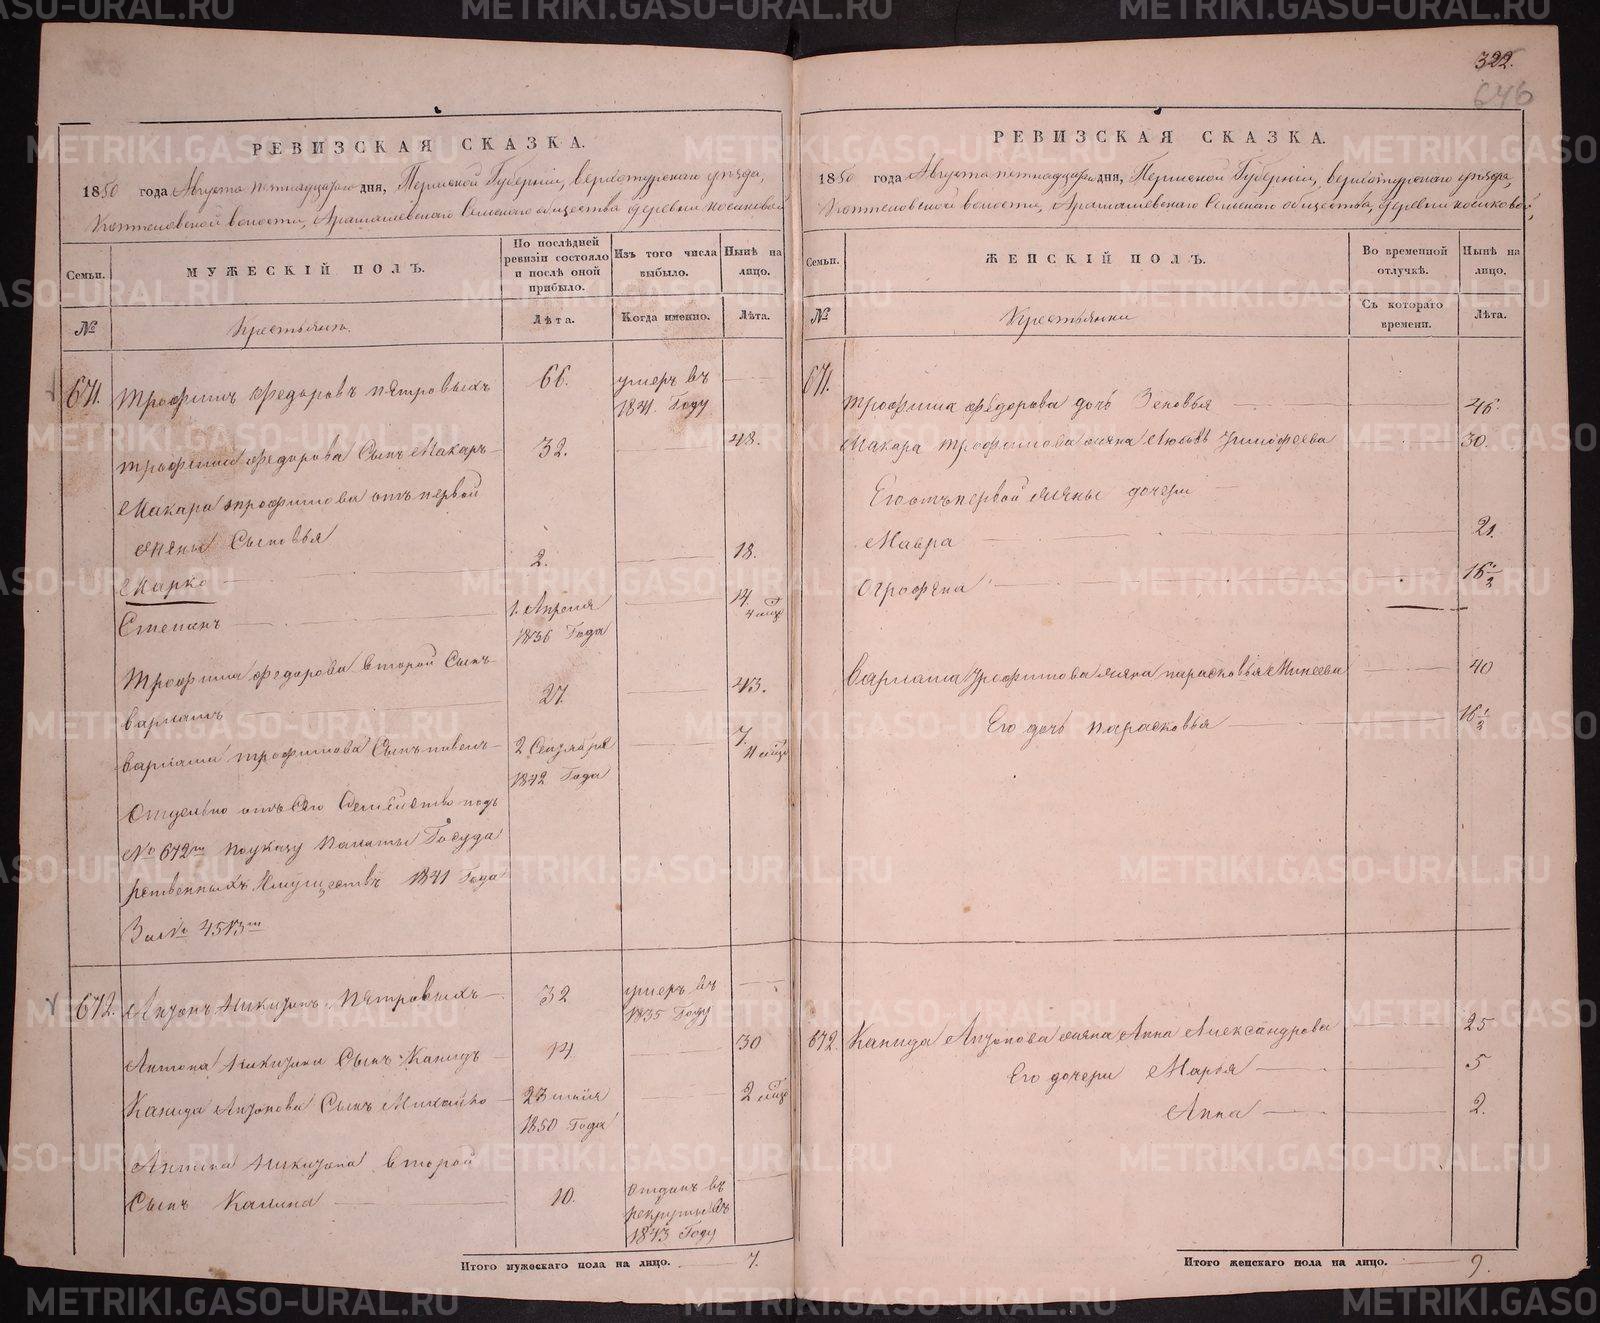 322.
646
РЕВИЗСКАЯ СКАЗКА.
1850 года Августа пятнадцатаго дня, Пермской Губерніи, верхотурскаго уѣзда,
Коптеловской волости, Арамашевскаго Сельскаго общества деревни косиковой
Семьи.
МУЖЕСКІЙ ПОЛЪ.
По послѣдней ревизіи состояло и послѣ оной прибыло.
Изъ того числа выбыло.
Нынѣ на лицо.
№
Крестьянъ.
Лѣта.
Когда именно.
Лѣта.
671. Трофимъ Федоровъ Пѣтровыхъ 66. умеръ въ
1841. Году
Трофима Федорова Сынъ Макаръ 32. 48.
Макара трофимова отъ первой
жены Сыновья
Марко 2. 18.
Степанъ 1. Апреля 14.
1836 Года 4 мѣц
Трофима Федорова второй Сынъ
варламъ 27. 43.
варлама трофимова Сынъ 2 Сентября 7.
1842 Года 11 мѣц
Отдельно отъ Сего Семейство подъ
№ 672м поуказу палаты Государ
рственныхъ Имуществъ 1841 Года
За № 4513м
672. Антонъ Никитинъ Пѣтровыхъ 32 умеръ въ
1835 Году
Антона Никитина Сынъ Канидъ 14 30
Канида Антонова Сынъ Михайло 23 2 мѣц
1850 Года
Антона Никитина второй
Сынъ Калина 10. отданъ въ
рекруты въ
1843 Году
Итого мужескаго пола на лицо. 7.
РЕВИЗСКАЯ СКАЗКА.
1850 года Августа пятнадцатаго дня, Пермской Губерніи, верхотурскаго уѣзда,
Коптеловской волости, Арамашевскаго Сельскаго общества, деревни косиковой,
Семьи.
ЖЕНСКІЙ ПОЛЪ.
Во временной отлучкѣ.
Нынѣ на лицо.
№
Крестьянки
Съ котораго времени.
Лѣта.
671.
трофима Федорова дочь Зеновья 46.
Макара трофимова жена Любовь Тимофеева 30.
Его отъ первой жены дочери
Мавра 21.
Огрофена 16 1/2
варлама Трофимова жена парасковья Минеева 40
Его дочь парасковья 16 1/2
672. Канида Антонова жена Анна Александрова 25
Его дочери Марья 5
Анна 2.
Итого женскаго пола на лицо. 9.
METRIKI.GASO-URAL.RU